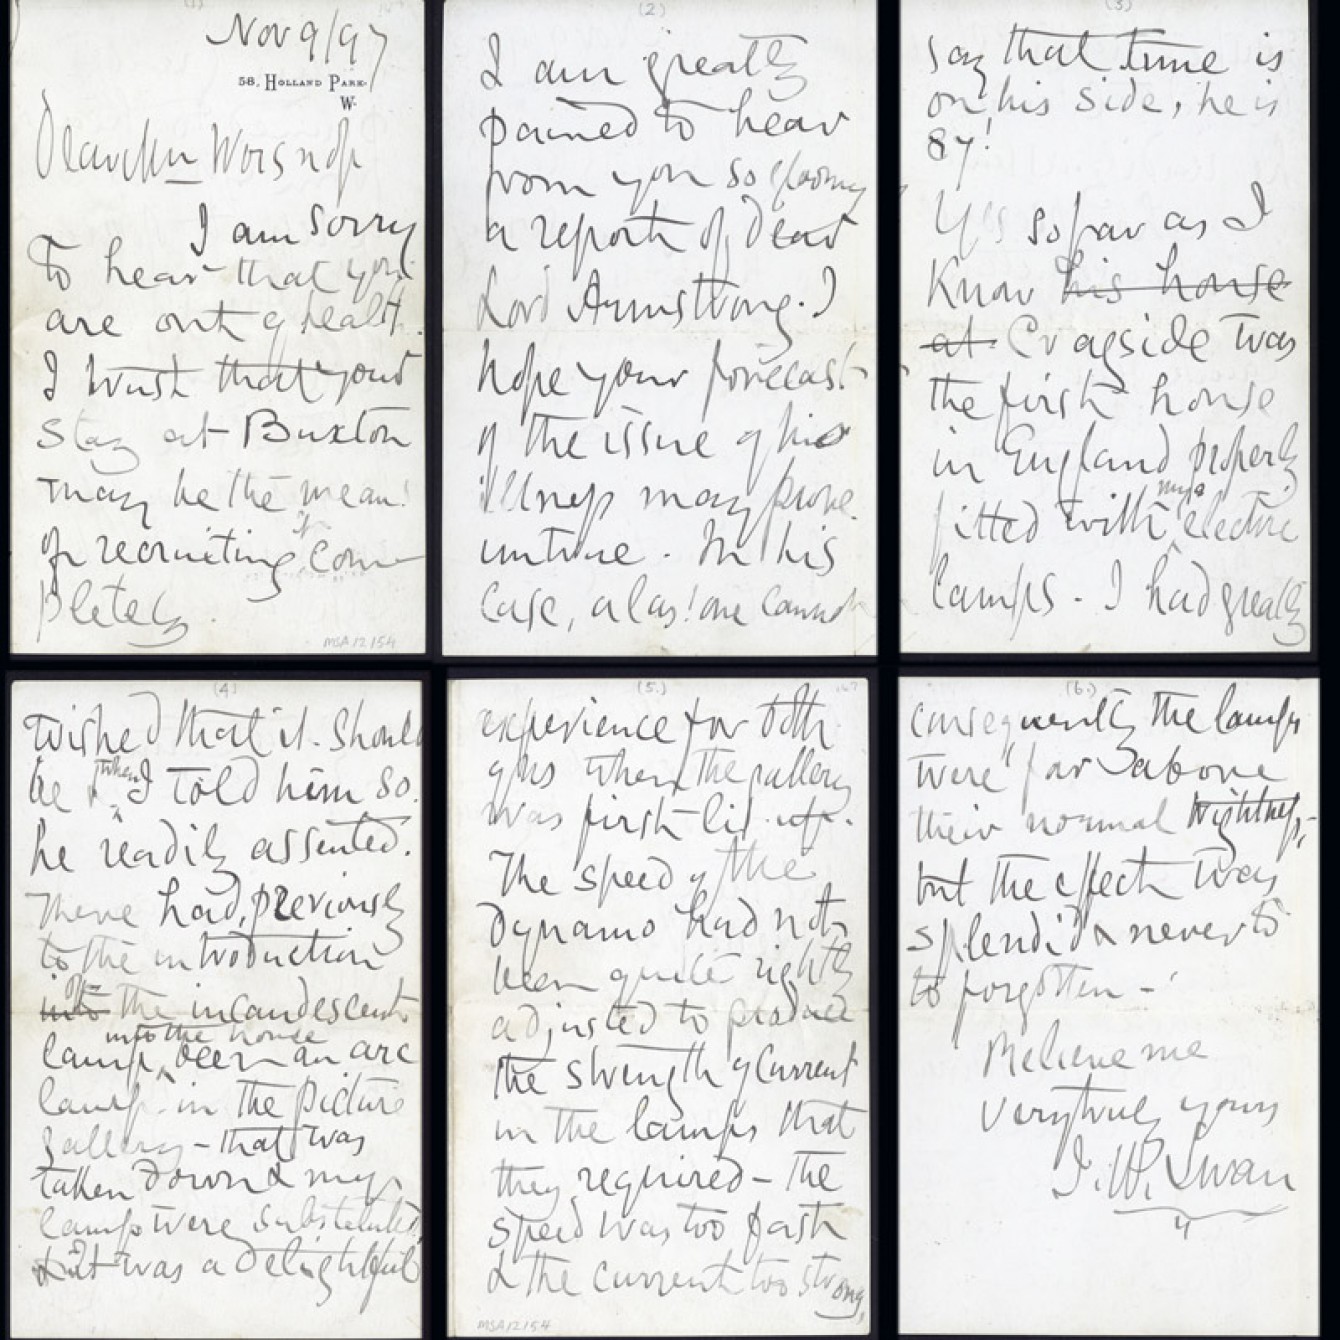 (1)
Nov 9/97
58, HOLLAND PARK,
W.
Dear Mr Worsnop
I am sorry
to hear that you
are out of health.
I trust that your
stay at Buxton
may be the means
of recruiting it com-
pletely.
MSA/2/54
(2)
I am greatly
pained to hear
from you so gloomy
a report of dear
Lord Armstrong. I
hope your forecast
of the issue of his
illness may prove
untrue. In his
case, alas! one cannot
(3)
say that time is
on his side, he is
87!
Yes so far as I
know his house
at Cragside was
the first house
in England properly
fitted with my electric
lamps - I had greatly
(4)
wished that it should
be & when I told him so
he readily assented.
There had, previously
to the introduction
into of the incandescent
lamp into the house been an arc
lamp in the picture
gallery - that was
taken down & my
lamps were substituted
& it was a delightful
(5.)
experience for both
of us when the gallery
was first lit up.
The speed of the
dynamo had not
been quite rightly
adjusted to produce
the strength of current
in the lamps that
they required - the
speed was too fast
& the current too strong,
MSA/2/54
(6.)
consequently the lamps
were far above
their normal brightness,-
but the effect was
splendid & never to
to forgotten -
Believe me
very truly yours
J. W. Swan